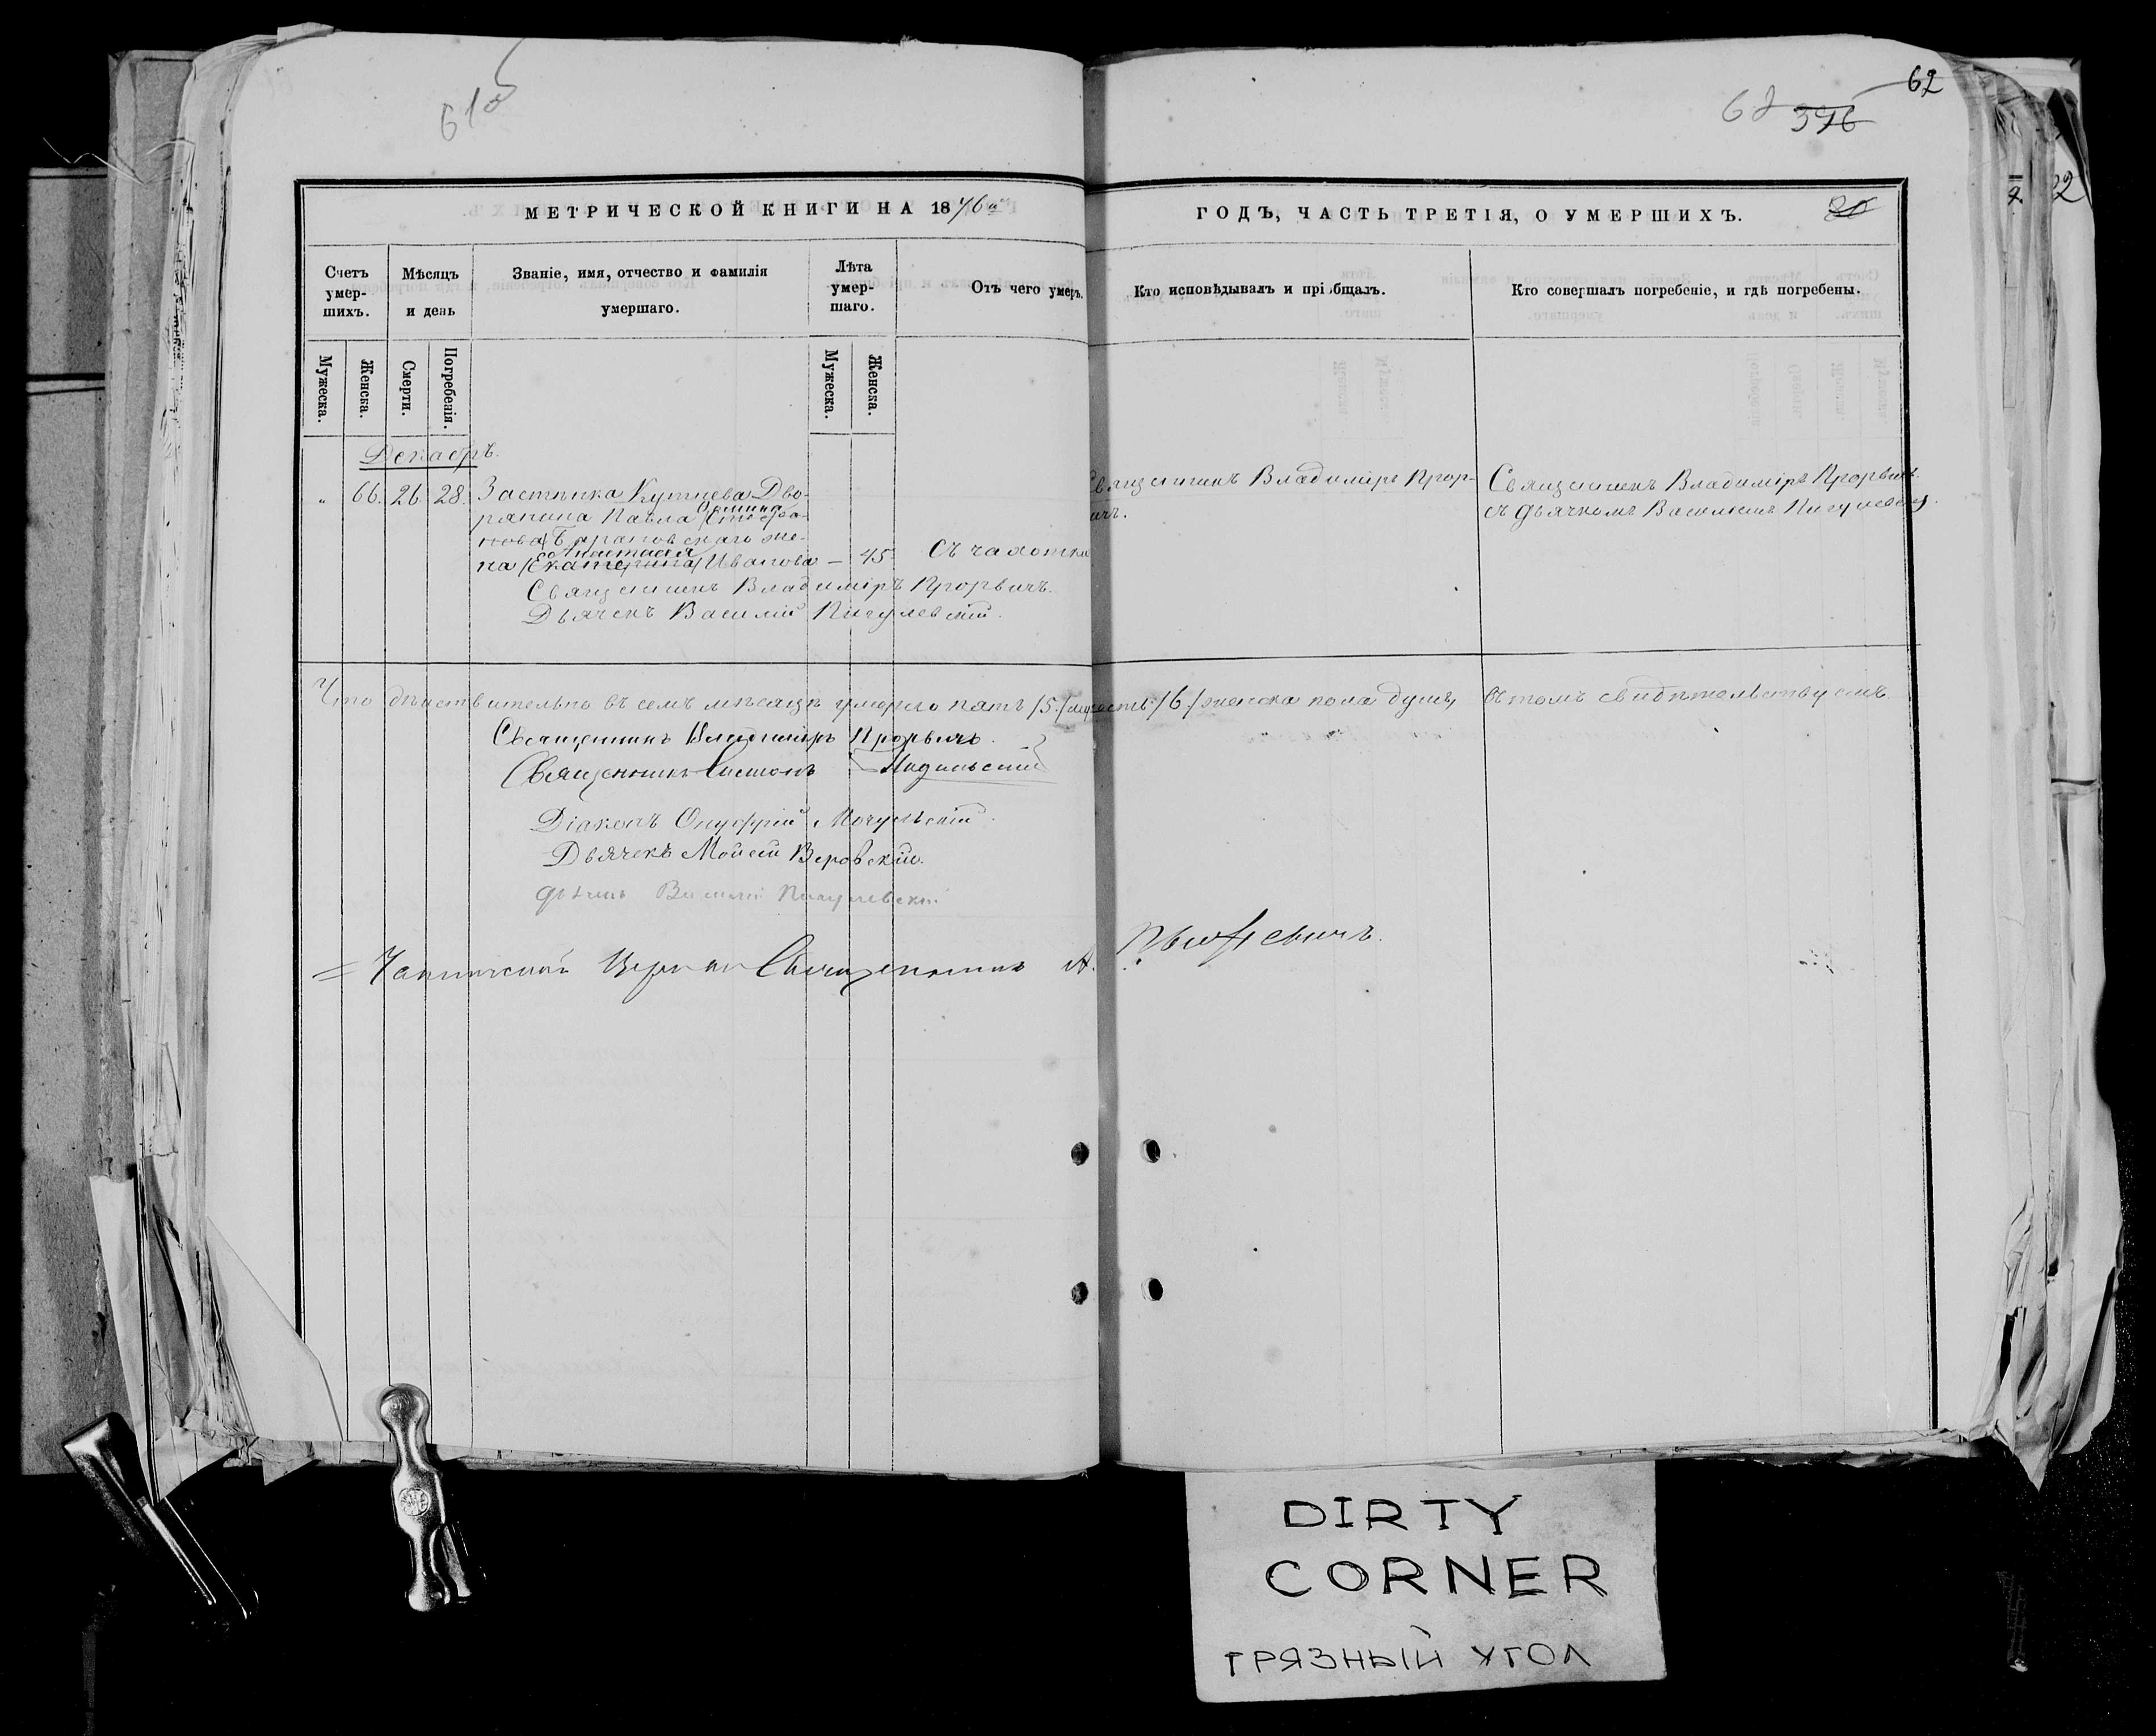 61об
62
62 376
МЕТРИЧЕСКОЙ КНИГИ НА 1876й
ГОДЪ, ЧАСТЬ ТРЕТІЯ, О УМЕРШИХЪ.
20
Счетъ умер-шихъ.
Мѣсяцъ и день
Званіе, имя, отчество и фамилія умершаго.
Лѣта умер-шаго.
Отъ чего умеръ.
Кто исповѣдывалъ и пріобщалъ.
Кто совершалъ погребеніе, и гдѣ погребены.
Мужеска.
Женска.
Смерти.
Погребенія.
Мужеска.
Женска.
Декабрь.
" 66. 26 28. Застѣнка Дво-
рянина Павла Ѳомина
скаго же-
на Анастасія (Екатерина) Иванова — 45 Съ чахотки
Священникъ Владиміръ Прорвичъ.
Дьячекъ Василій Пигулевскій.
Священникъ Владиміръ Прор-
вичъ.
Священникъ Владиміръ Прорвичъ
съ дьячкомъ Василіемъ Пигулевск
Что дѣйствительно въ семъ мѣсяцѣ умерло пять /5./ /6./ женска пола душъ, въ томъ свидѣтельствуемъ.
Священникъ Владиміръ Прорвичъ.
Священникъ
Діаконъ Онуфрій Мочульскій.
Дьячекъ Мойсей Веровскій.
Василій Пигулевскій
Священникъ А.
DIRTY
CORNER
ГРЯЗНЫЙ УГОЛ